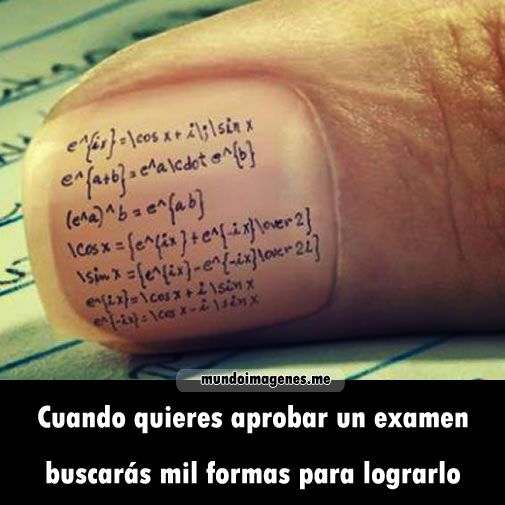 e^{ix}=\cos x+i\;\sin x
e^{a+b}=e^a\cdot e^{b}
(e^a)^b=e^{ab}
\cos x={e^{ix}+e^{-ix}\over 2}
\sin x={e^{ix}-e^{-ix}\over 2i}
e^{ix}=\cos x+i\sin x
e^{-ix}=\cos x-i\sin x
mundoimagenes.me
Cuando quieres aprobar un examen
buscarás mil formas para lograrlo